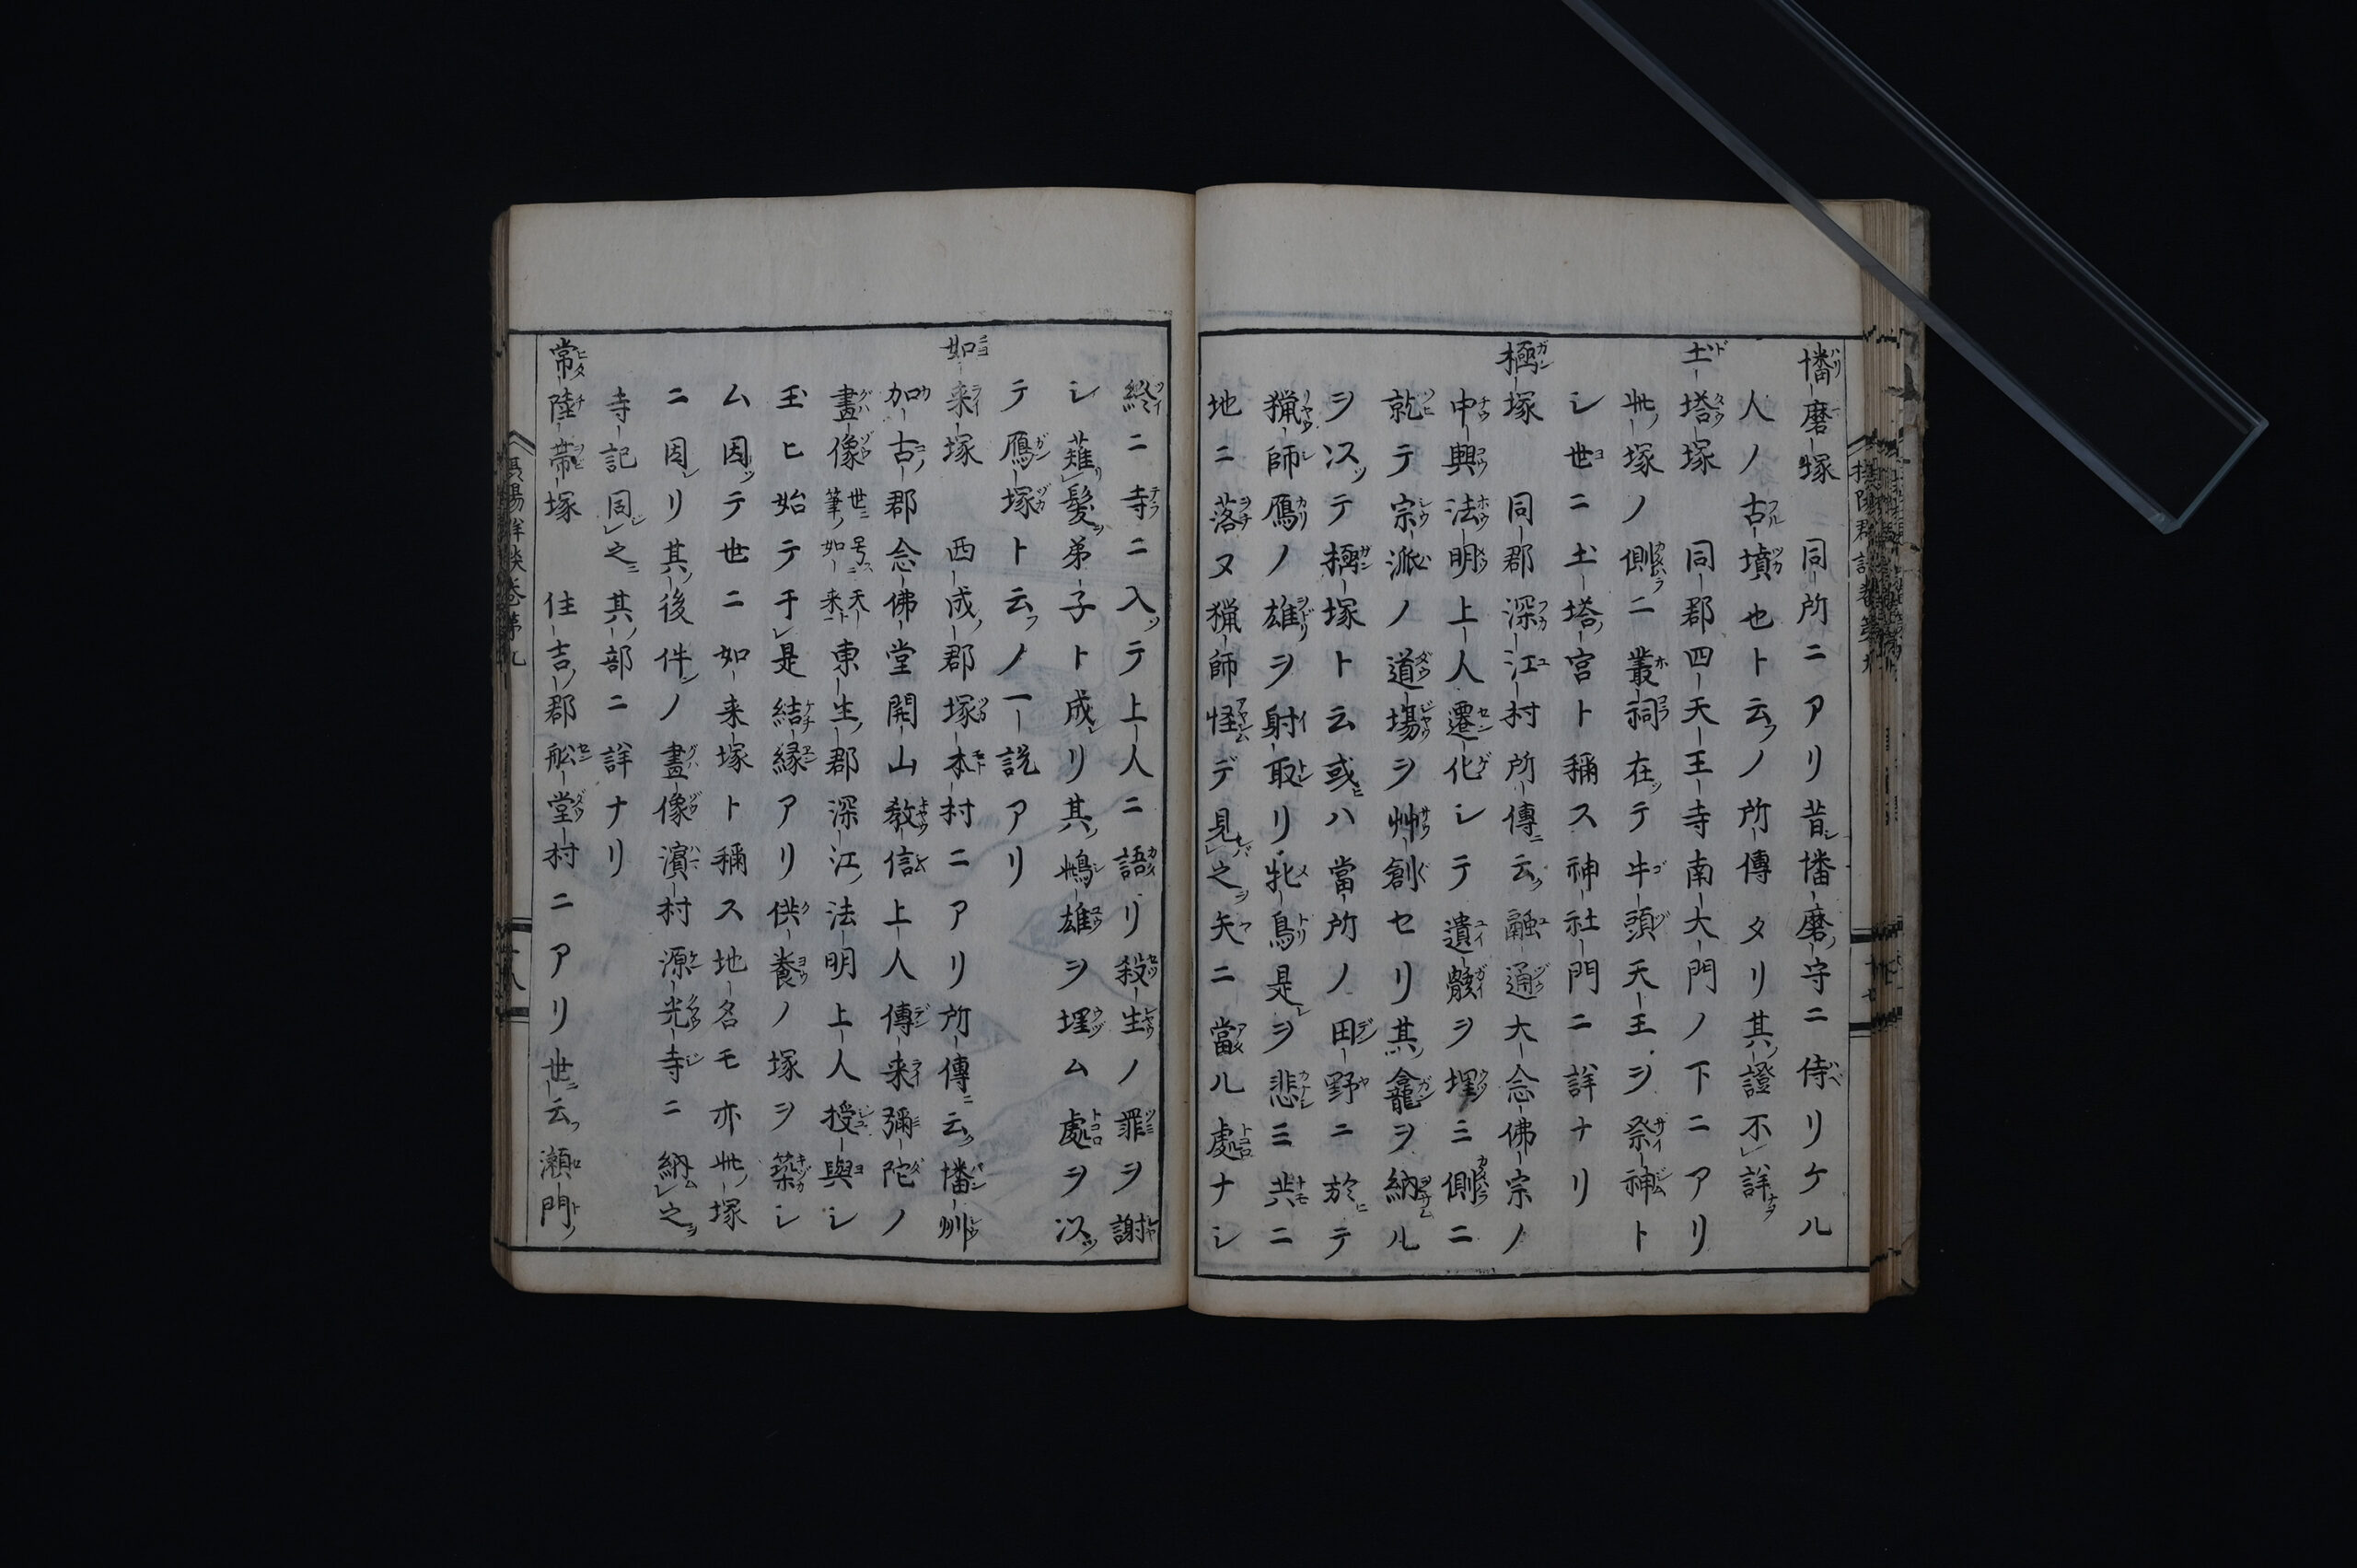 幡磨塚 同所ニアリ昔幡磨守ニ侍リケル
人ノ古墳也ト云ノ所傳タリ其證不詳
土塔塚 同郡四天王寺南大門ノ下ニアリ
此塚ノ側ニ叢祠在テ牛頭天王ヲ祭神ト
シ世ニ土塔宮ト稱ス神社門ニ詳ナリ
極塚 同郡深江村所傳云融通大念佛宗ノ
中興法明上人遷化シテ遺骸ヲ埋ミ側ニ
就テ宗派ノ道場ヲ艸創セリ其龕ヲ納ル
ヲ以テ極塚ト云或ハ當所ノ田野ニ於テ
猟師鴈ノ雄ヲ射取リ牝鳥是ヲ悲ミ共ニ
地ニ落ヌ猟師怪デ見之矢ニ當ル處ナシ
終ニ寺ニ入テ上人ニ語リ殺生ノ罪ヲ謝
シ薙髮弟子ト成リ其鴙雄ヲ埋ム處ヲ以
テ鴈塚ト云ノ一説アリ
如来塚 西成郡塚本村ニアリ所傳云幡州
加古郡念佛堂開山教信上人傳来彌陀ノ
畫像世ニ号天筆如来ト東生郡深江法明上人授與シ
玉ヒ始テ于是結縁アリ供養ノ塚ヲ築シ
ム因テ世ニ如来塚ト稱ス地名モ亦此塚
ニ因リ其後件ノ畫像濱村源光寺ニ納之
寺記同之其部ニ詳ナリ
常陸帯塚 住吉郡舩堂村ニアリ世云瀬門
攝陽群談巻第九
十八